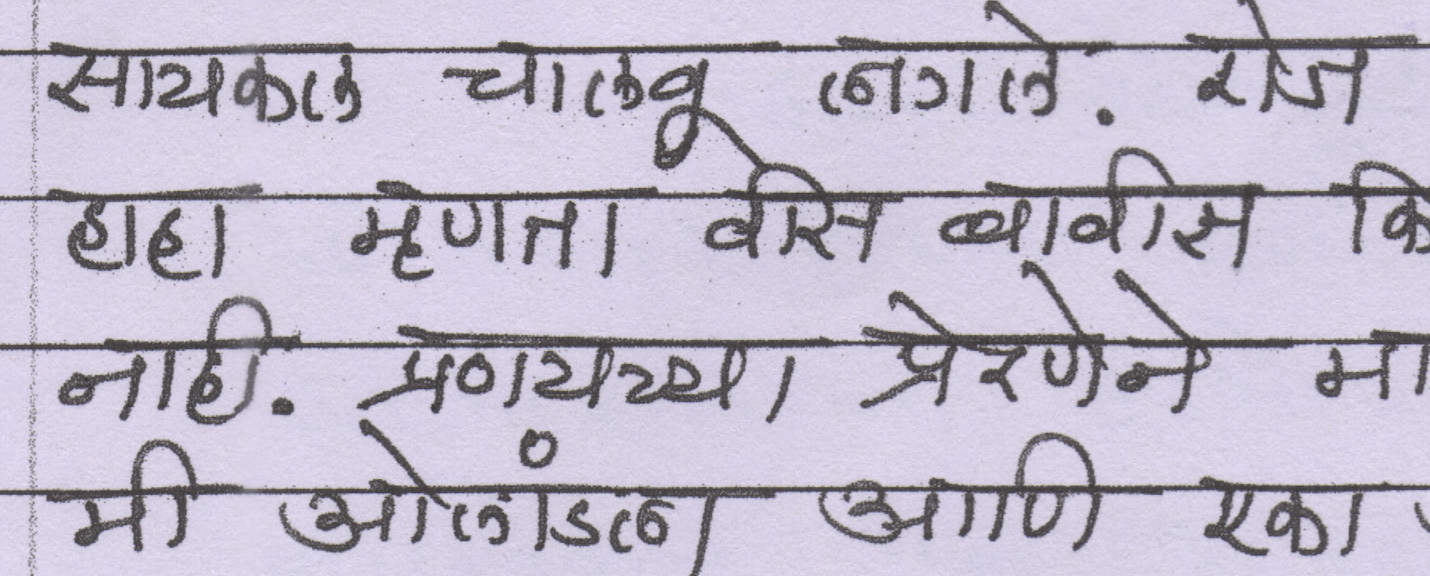 सायकल चालवू लागले. रोज
हाहा म्हणता वीस बावीस कि
नाही. प्रणयच्या प्रेरणेने मा
मी ओलांडला आणि एका